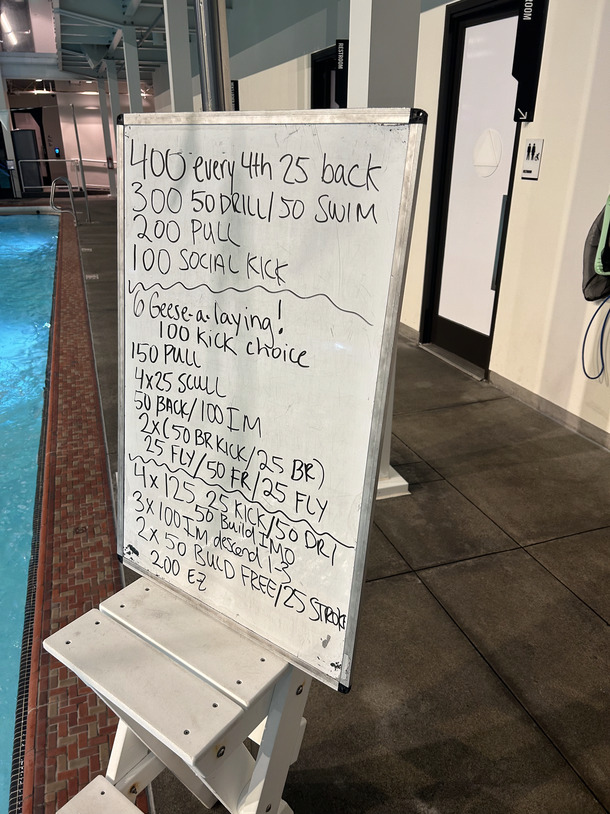 400 every 4th 25 back
300 50 DRILL/50 SWIM
200 PULL
100 SOCIAL KICK
6 Geese-a-laying!
100 KICK choice
150 PULL
4x25 SCULL
50 BACK/100 IM
2x(50 BR KICK/25 BR)
25 FLY/50 FR/25 FLY
4x125 25 KICK/50 DRI
50 Build IMO
3x100 IM descend 1-3
2x50 BUILD FREE/25 STROKE
200 EZ
RESTROOM
RESTROOM